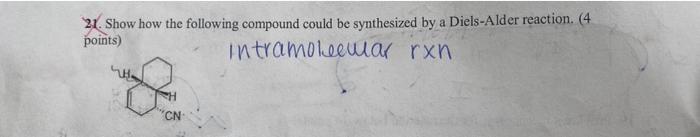 21. Show how the following compound could be synthesized by a Diels-Alder reaction. (4
points)
intramolecular rxn
H
H
CN